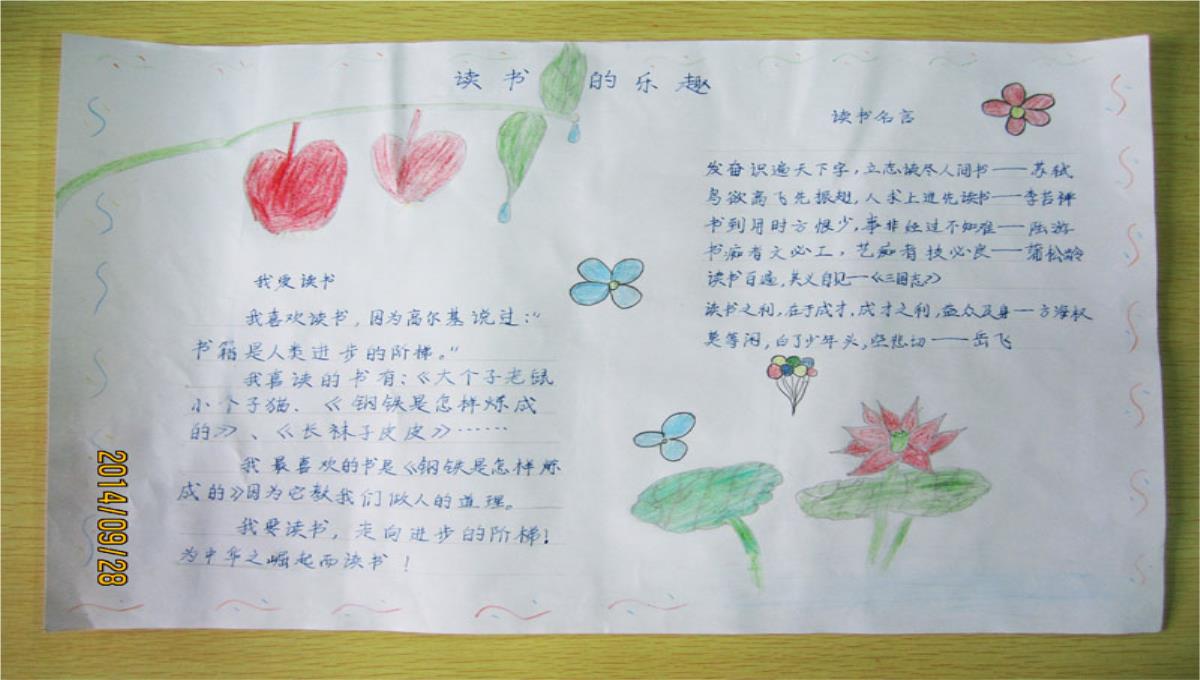 读书的乐趣
我爱读书
我喜欢读书，因为高尔基说过：“
书籍是人类进步的阶梯。”
我喜读的书有：《大个子老鼠
小个子猫、《钢铁是怎样炼成
的》、《长袜子皮皮》……
我最喜欢的书是《钢铁是怎样炼
成的》因为它教我们做人的道理。
我要读书，走向进步的阶梯！
为中华之崛起而读书！
读书名言
发奋识遍天下字，立志读尽人间书——苏轼
鸟欲高飞先振翅，人求上进先读书——李苦禅
书到用时方恨少，事非经过不知难——陆游
书痴者文必工，艺痴者技必良——蒲松龄
读书百遍，其义自见—《三国志》
读书之利，在于成才，成才之利，益众及身—方海权
莫等闲，白了少年头，空悲切——岳飞
2014/09/28